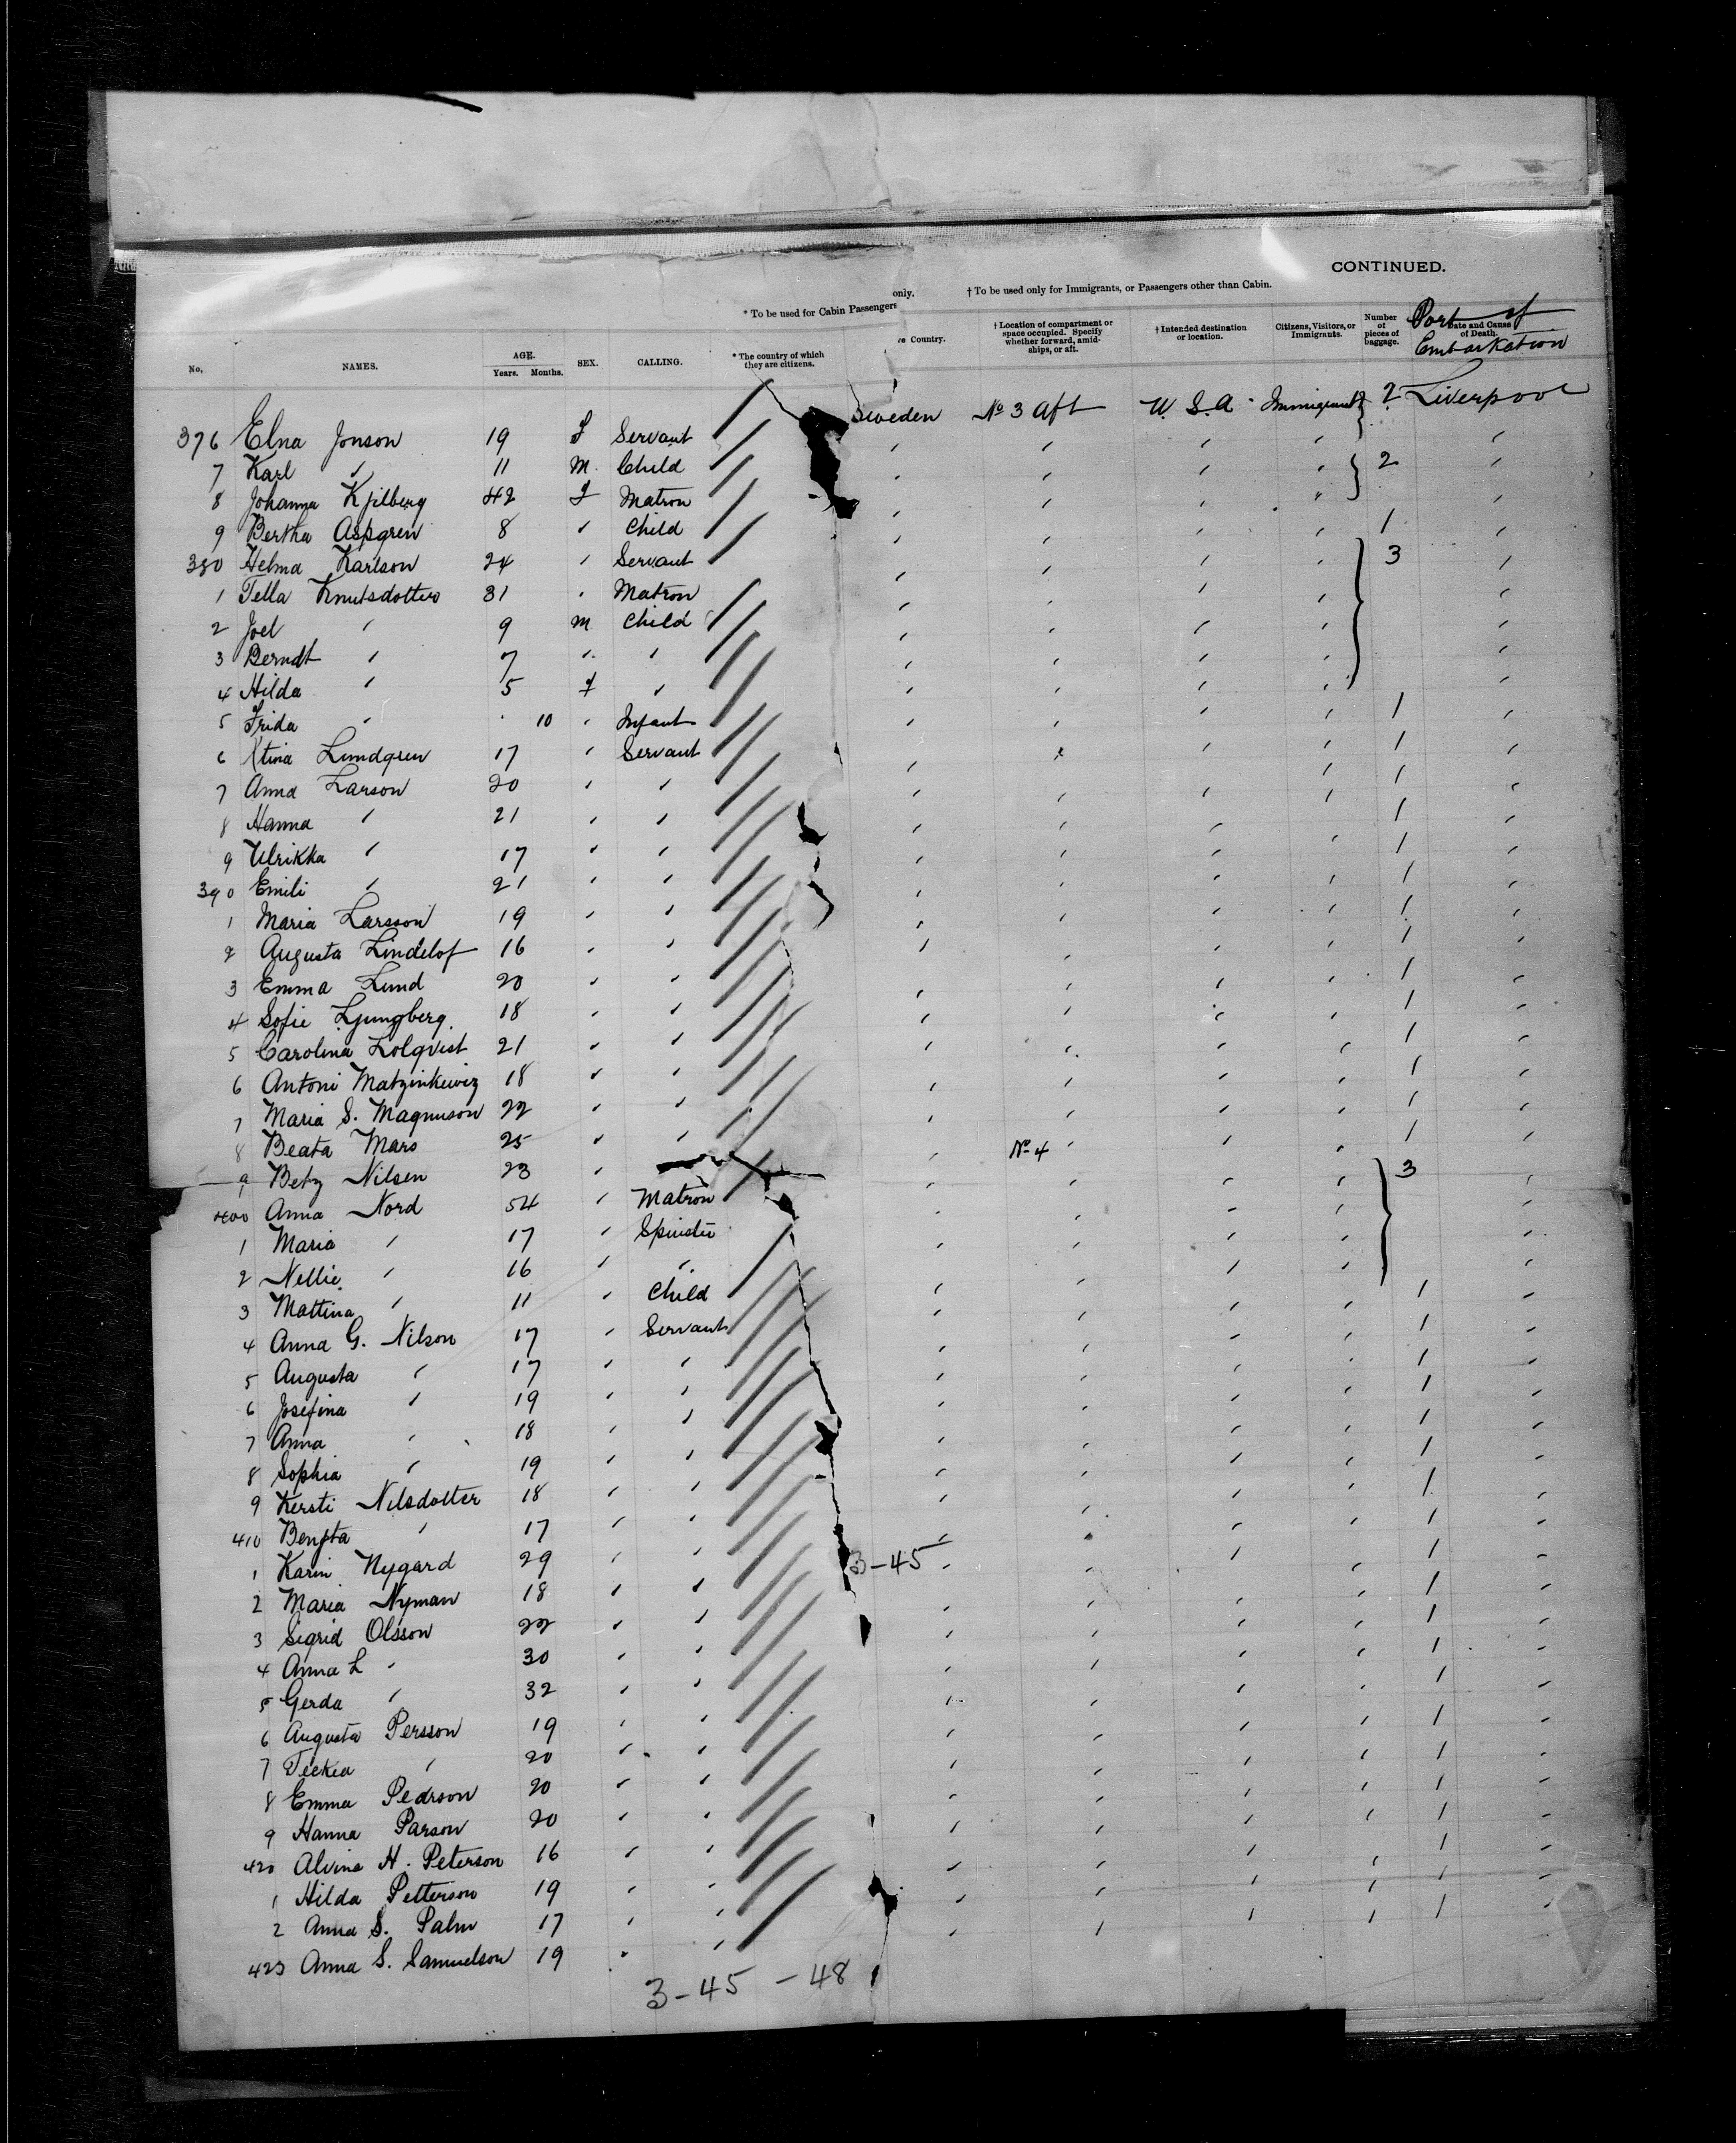 CONTINUED.
* To be used for Cabin Passengers only. † To be used only for Immigrants, or Passengers other than Cabin.
No. NAMES. AGE. Years. Months. SEX. CALLING. * The country of which they are citizens. ve Country. † Location of compartment or space occupied. Specify whether forward, amidships, or aft. † Intended destination or location. Citizens, Visitors, or Immigrants. Number of pieces of baggage. Date and Cause of Death. Port of Embarkation
376 Elna Jonson 19 F Servant Sweden No 3 Aft U.S.A. Immigrant 2 Liverpool
7 Karl " 11 M. Child " " " " "
8 Johanna Kjilberg 42 F Matron " " " " 2 "
9 Bertha Aspgren 8 " Child " " " " "
380 Helma Karlson 24 " Servant " " " " 1 "
1 Tella Knutsdotter 31 " Matron " " " " 3 "
2 Joel " 9 M Child " " " " "
3 Berndt " 7 " " " " " " "
4 Hilda " 5 F " " " " " "
5 Frida " 10 " Infant " " " " "
6 Xtina Lundgren 17 " Servant " " " " 1 "
7 Anna Larson 20 " " " " " " 1 "
8 Hanna " 21 " " " " " " 1 "
9 Ulrikka " 17 " " " " " " 1 "
390 Emili " 21 " " " " " " 1 "
1 Maria Larsson 19 " " " " " " 1 "
2 Augusta Lindelof 16 " " " " " " 1 "
3 Emma Lund 20 " " " " " " 1 "
4 Sofie Ljungberg 18 " " " " " " 1 "
5 Carolina Lolqvist 21 " " " " " " 1 "
6 Antoni Matzinkewiz 18 " " " " " " 1 "
7 Maria S. Magnuson 22 " " " " " " 1 "
8 Beata Mars 25 " " " " " " 1 "
9 Betz Nilsen 23 " " No 4 " " " 1 "
400 Anna Nord 54 " Matron " " " " 3 "
1 Maria " 17 " Spinster " " " " "
2 Nellie " 16 " " " " " " "
3 Mattina " 11 " Child " " " " "
4 Anna G. Nilson 17 " Servant " " " " 1 "
5 Augusta " 17 " " " " " " 1 "
6 Josefina " 19 " " " " " " 1 "
7 Anna " 18 " " " " " " 1 "
8 Sophia " 19 " " " " " " 1 "
9 Kersti Nilsdotter 18 " " " " " " 1 "
410 Bengta " 17 " " " " " " 1 "
1 Karin Nygard 29 " " 3-45 " " " " 1 "
2 Maria Nyman 18 " " " " " " 1 "
3 Sigrid Olsson 22 " " " " " " 1 "
4 Anna L " 30 " " " " " " 1 "
5 Gerda " 32 " " " " " " 1 "
6 Augusta Persson 19 " " " " " " 1 "
7 Teckia " 20 " " " " " " 1 "
8 Emma Pearson 20 " " " " " " 1 "
9 Hanna Parson 20 " " " " " " 1 "
420 Alvina H. Peterson 16 " " " " " " 1 "
1 Hilda Petterson 19 " " " " " " 1 "
2 Anna S. Palm 17 " " " " " " 1 "
423 Anna S. Samuelson 19 " " " " " " 1 "
3-45-48